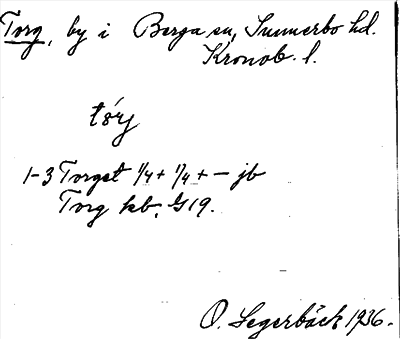 Torg, by i Berga sn, Sunnerbo hd.
Kronob. l.
1-3 Torget 1/4 + 1/4 + - jb
Torg kb, G19.
O. Segerbäck 1936.